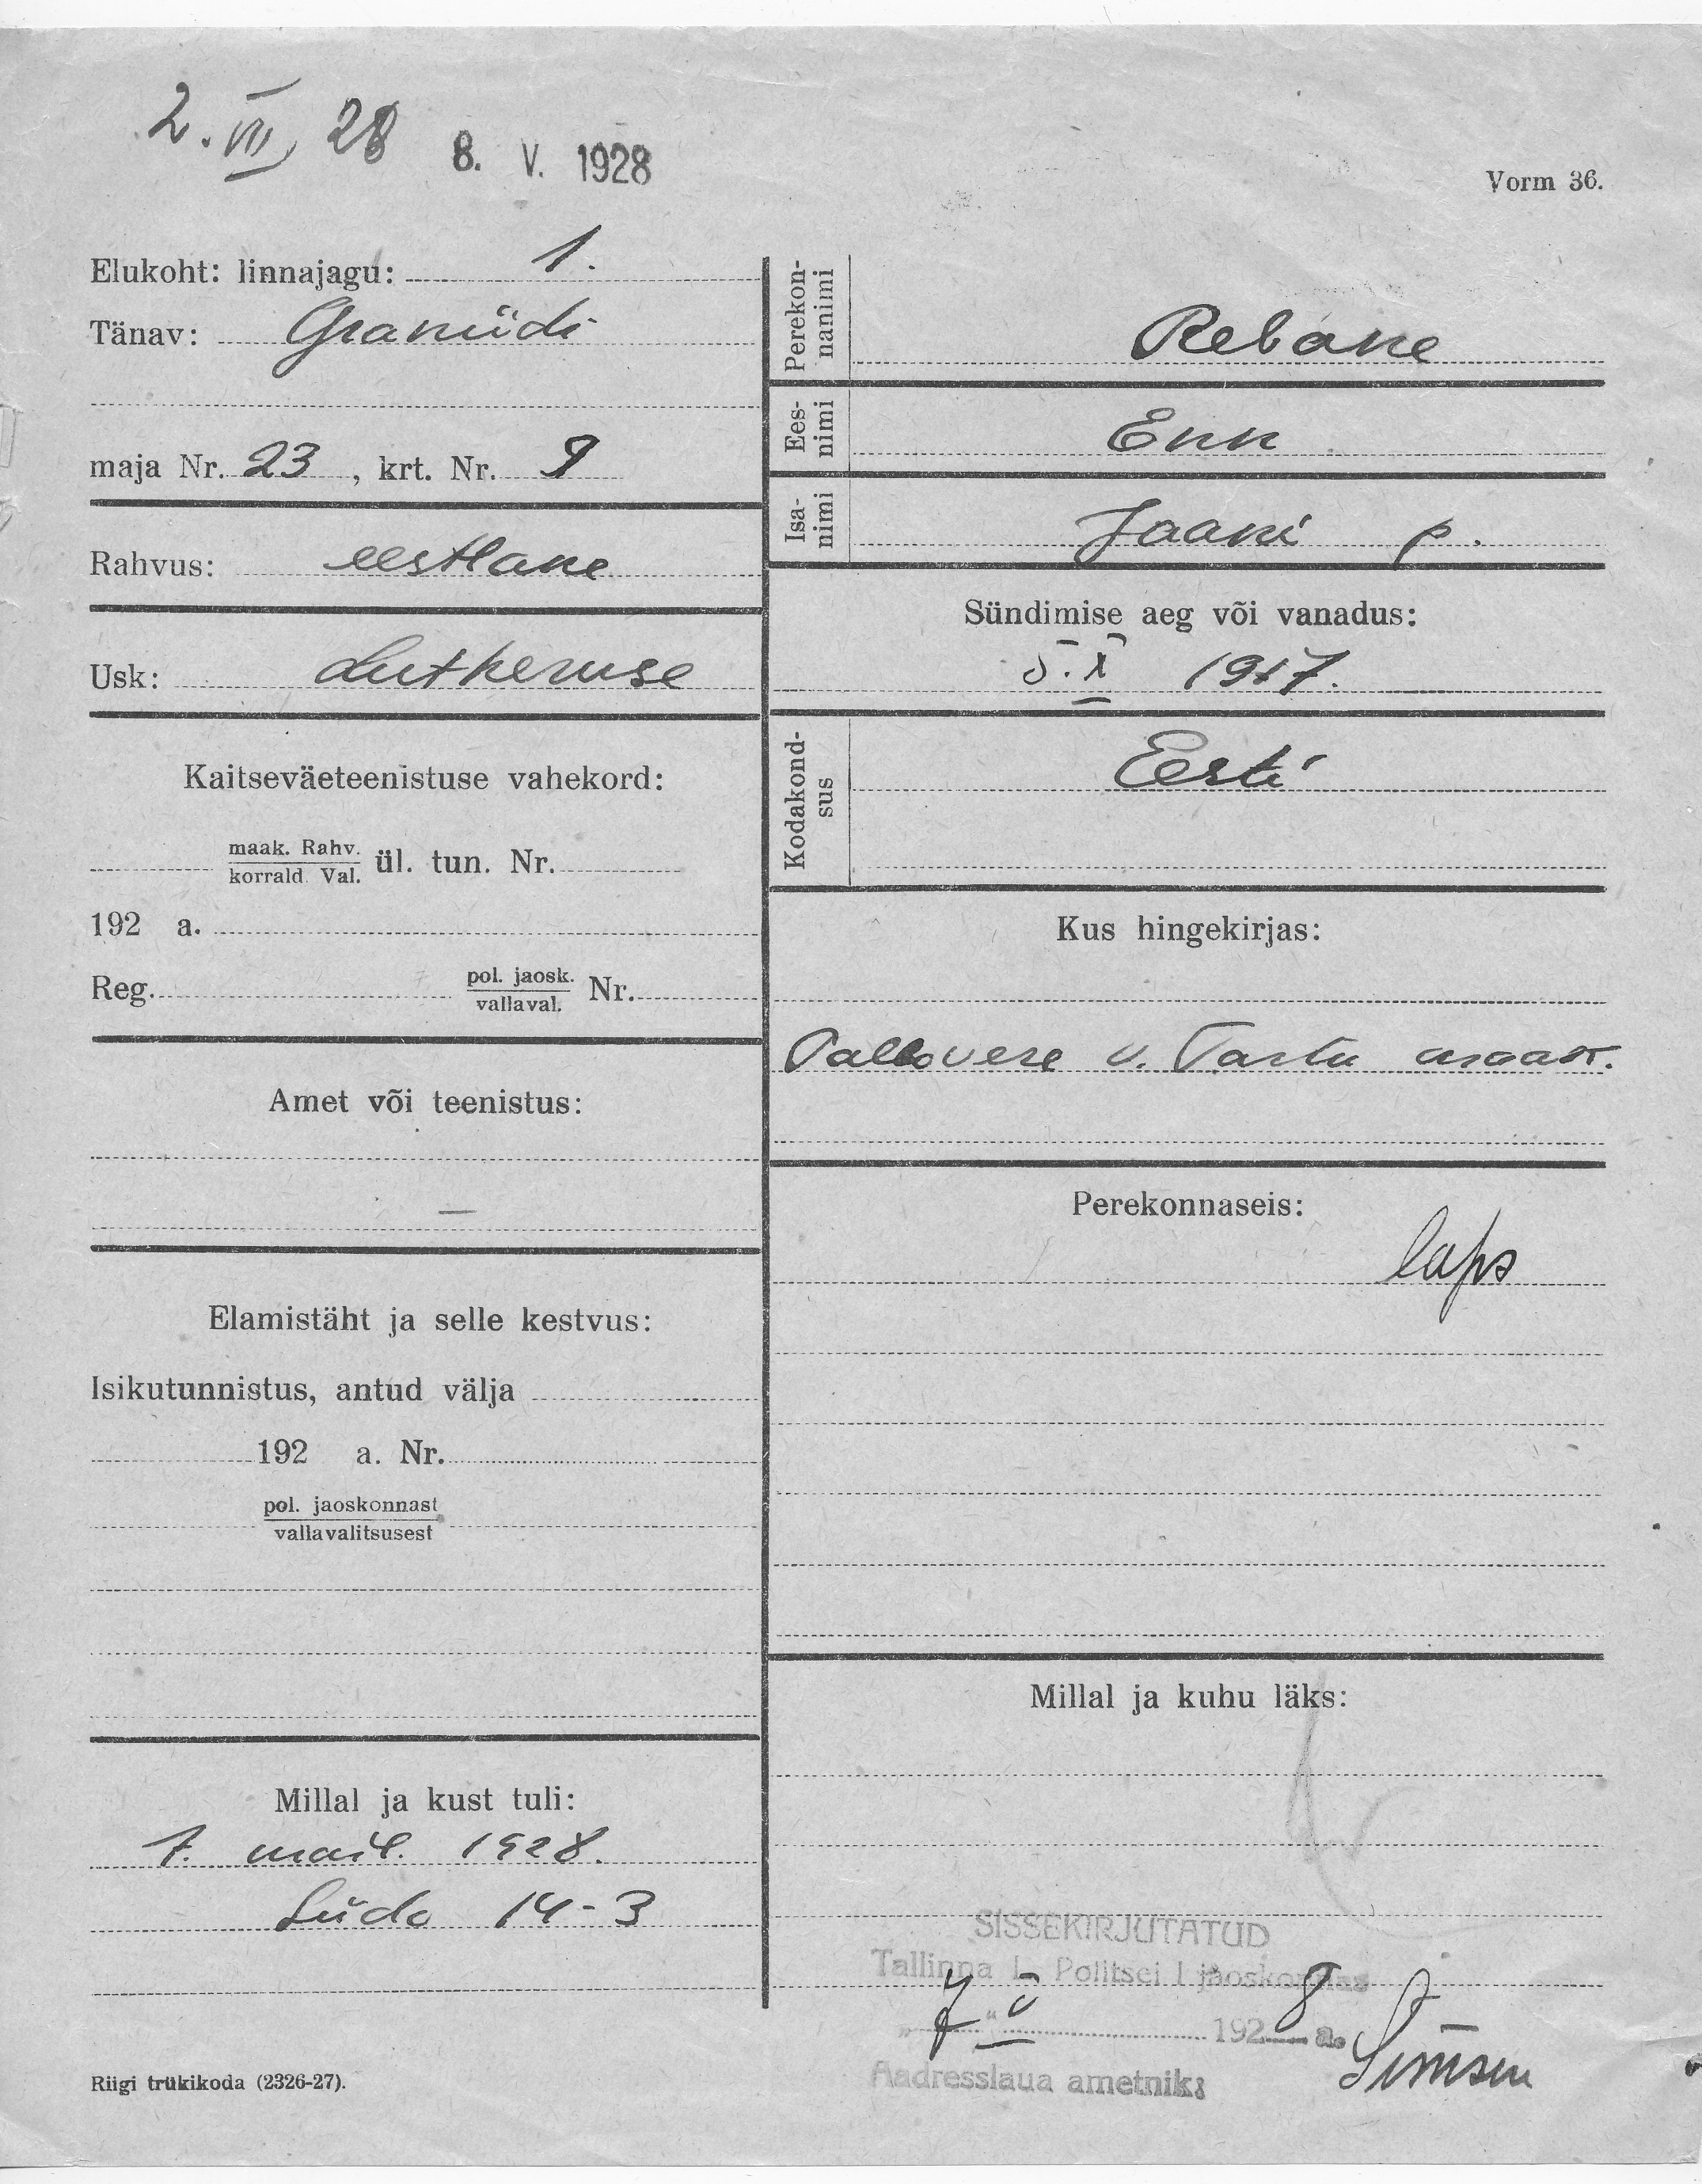 2. VII, 28
8. V. 1928
Vorm 36.
Elukoht: linnajagu: 1.
Tänav: Graniidi
maja Nr. 23, krt. Nr. 9
Rahvus: eestlane
Usk: Lutheruse
Kaitseväeteenistuse vahekord:
maak. Rahv.
korrald. Val. ül. tun. Nr.
192 a.
Reg. pol. jaosk.
vallaval. Nr.
Amet või teenistus:
—
Elamistäht ja selle kestvus:
Isikutunnistus, antud välja
192 a. Nr.
pol. jaoskonnast
vallavalitsusest
Millal ja kust tuli:
7. mail. 1928.
Süda 14-3
Riigi trükikoda (2326-27).
Perekon-
nanimi
Rebane
Ees-
nimi
Enn
Isa-
nimi
Jaani p.
Sündimise aeg või vanadus:
5. X 1917.
Kodakond-
sus
Eesti
Kus hingekirjas:
v. Tartu maak.
Perekonnaseis:
laps
Millal ja kuhu läks:
SISSEKIRJUTATUD
Tallinna L. Politsei I jaoskonnas
„7“ V 1928 a.
Aadresslaua ametnik: